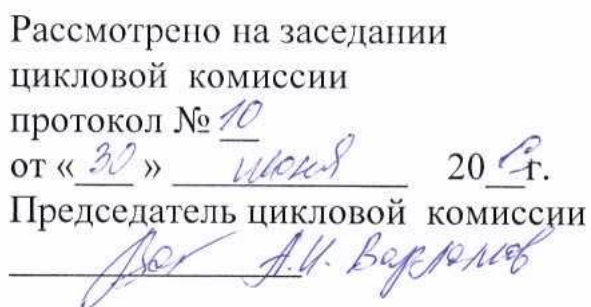 Рассмотрено на заседании
цикловой комиссии
протокол № 10
от « 30 » июня 20 г.
Председатель цикловой комиссии
А.И.